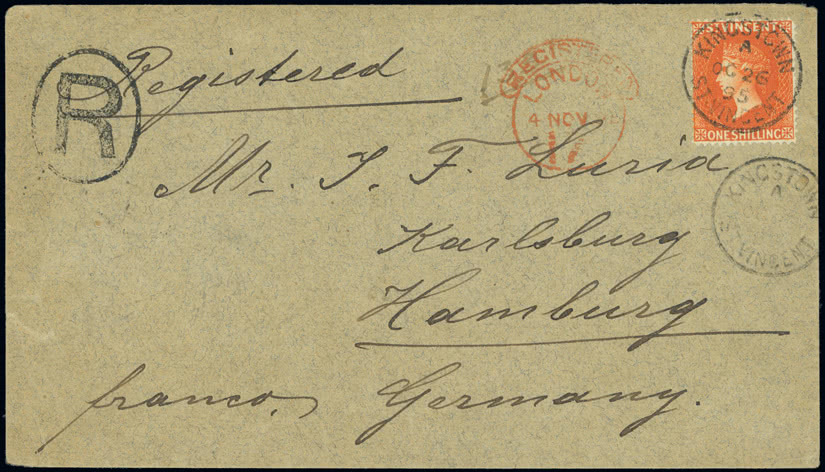 ST. VINCENT
KINGSTOWN
A
OC 26
95
ST. VINCENT
ONE SHILLING
REGISTERED
LONDON
4 NOV
R
Registered
Mr. J. F. Luria
Karlsburg
Hamburg
franco. Germany.
KINGSTOWN
A
ST. VINCENT